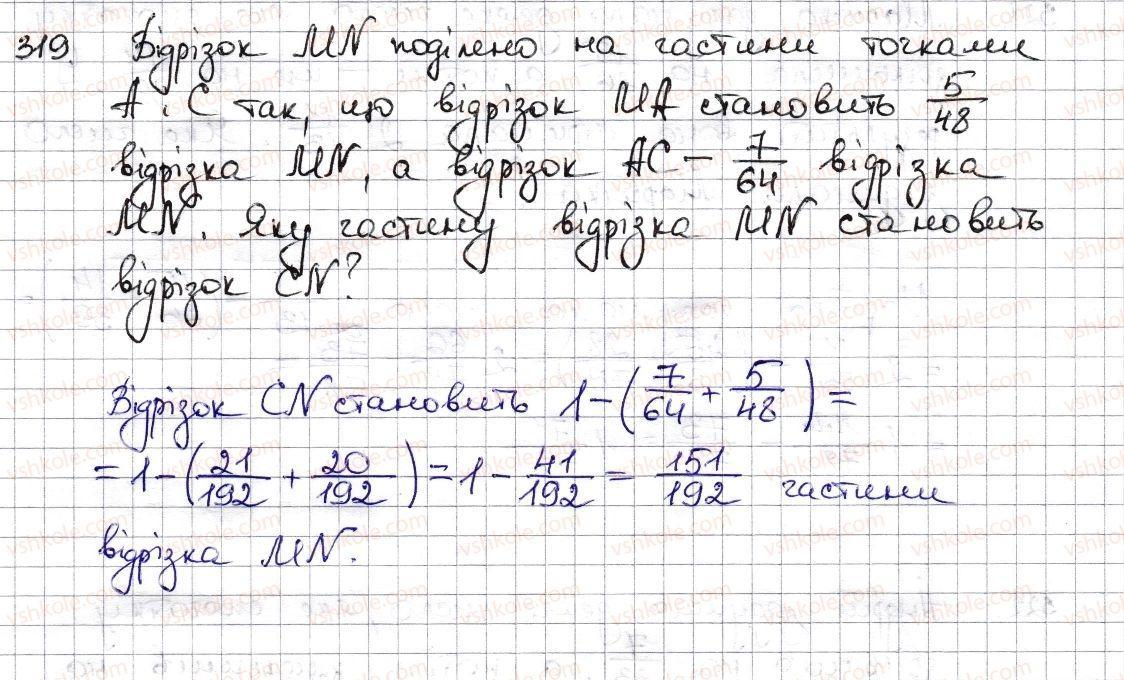 319. Відрізок MN поділено на частини точками
A і C так, що відрізок MA становить 5/48
відрізка MN, а відрізок AC – 7/64 відрізка
MN. Яку частину відрізка MN становить
відрізок CN?
Відрізок CN становить 1 - (7/64 + 5/48) =
= 1 - (21/192 + 20/192) = 1 - 41/192 = 151/192 частини
відрізка MN.